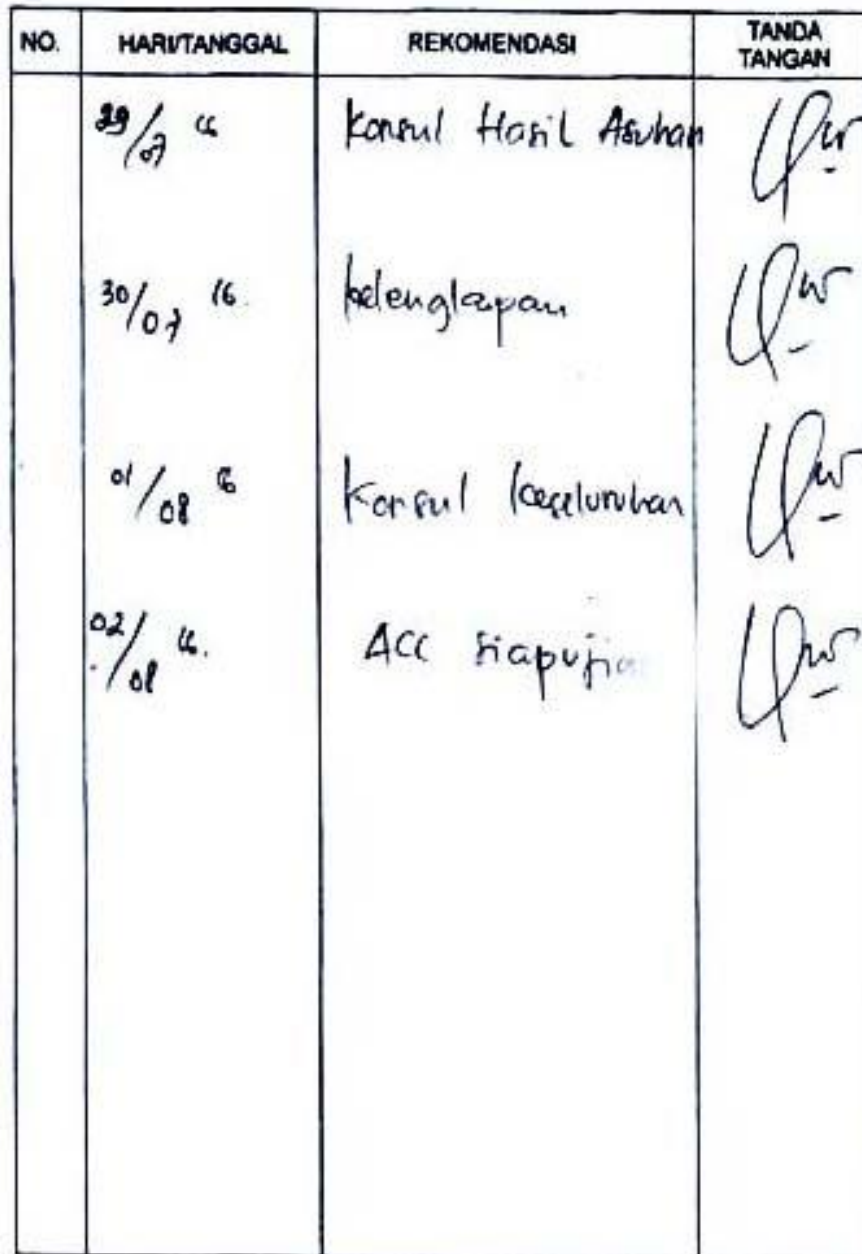 NO. HARI/TANGGAL REKOMENDASI TANDA TANGAN
29/07 16 Konsul Hasil Asuhan
30/07 16. kelengkapan
01/08 16 Konsul keseluruhan
02/08 16. ACC siap ujia